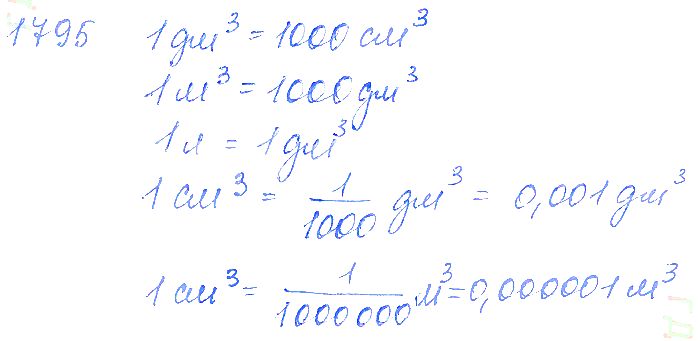 1795 1 дм³ = 1000 см³
1 м³ = 1000 дм³
1 л = 1 дм³
1 см³ = 1/1000 дм³ = 0,001 дм³
1 см³ = 1/1000000 м³ = 0,000001 м³